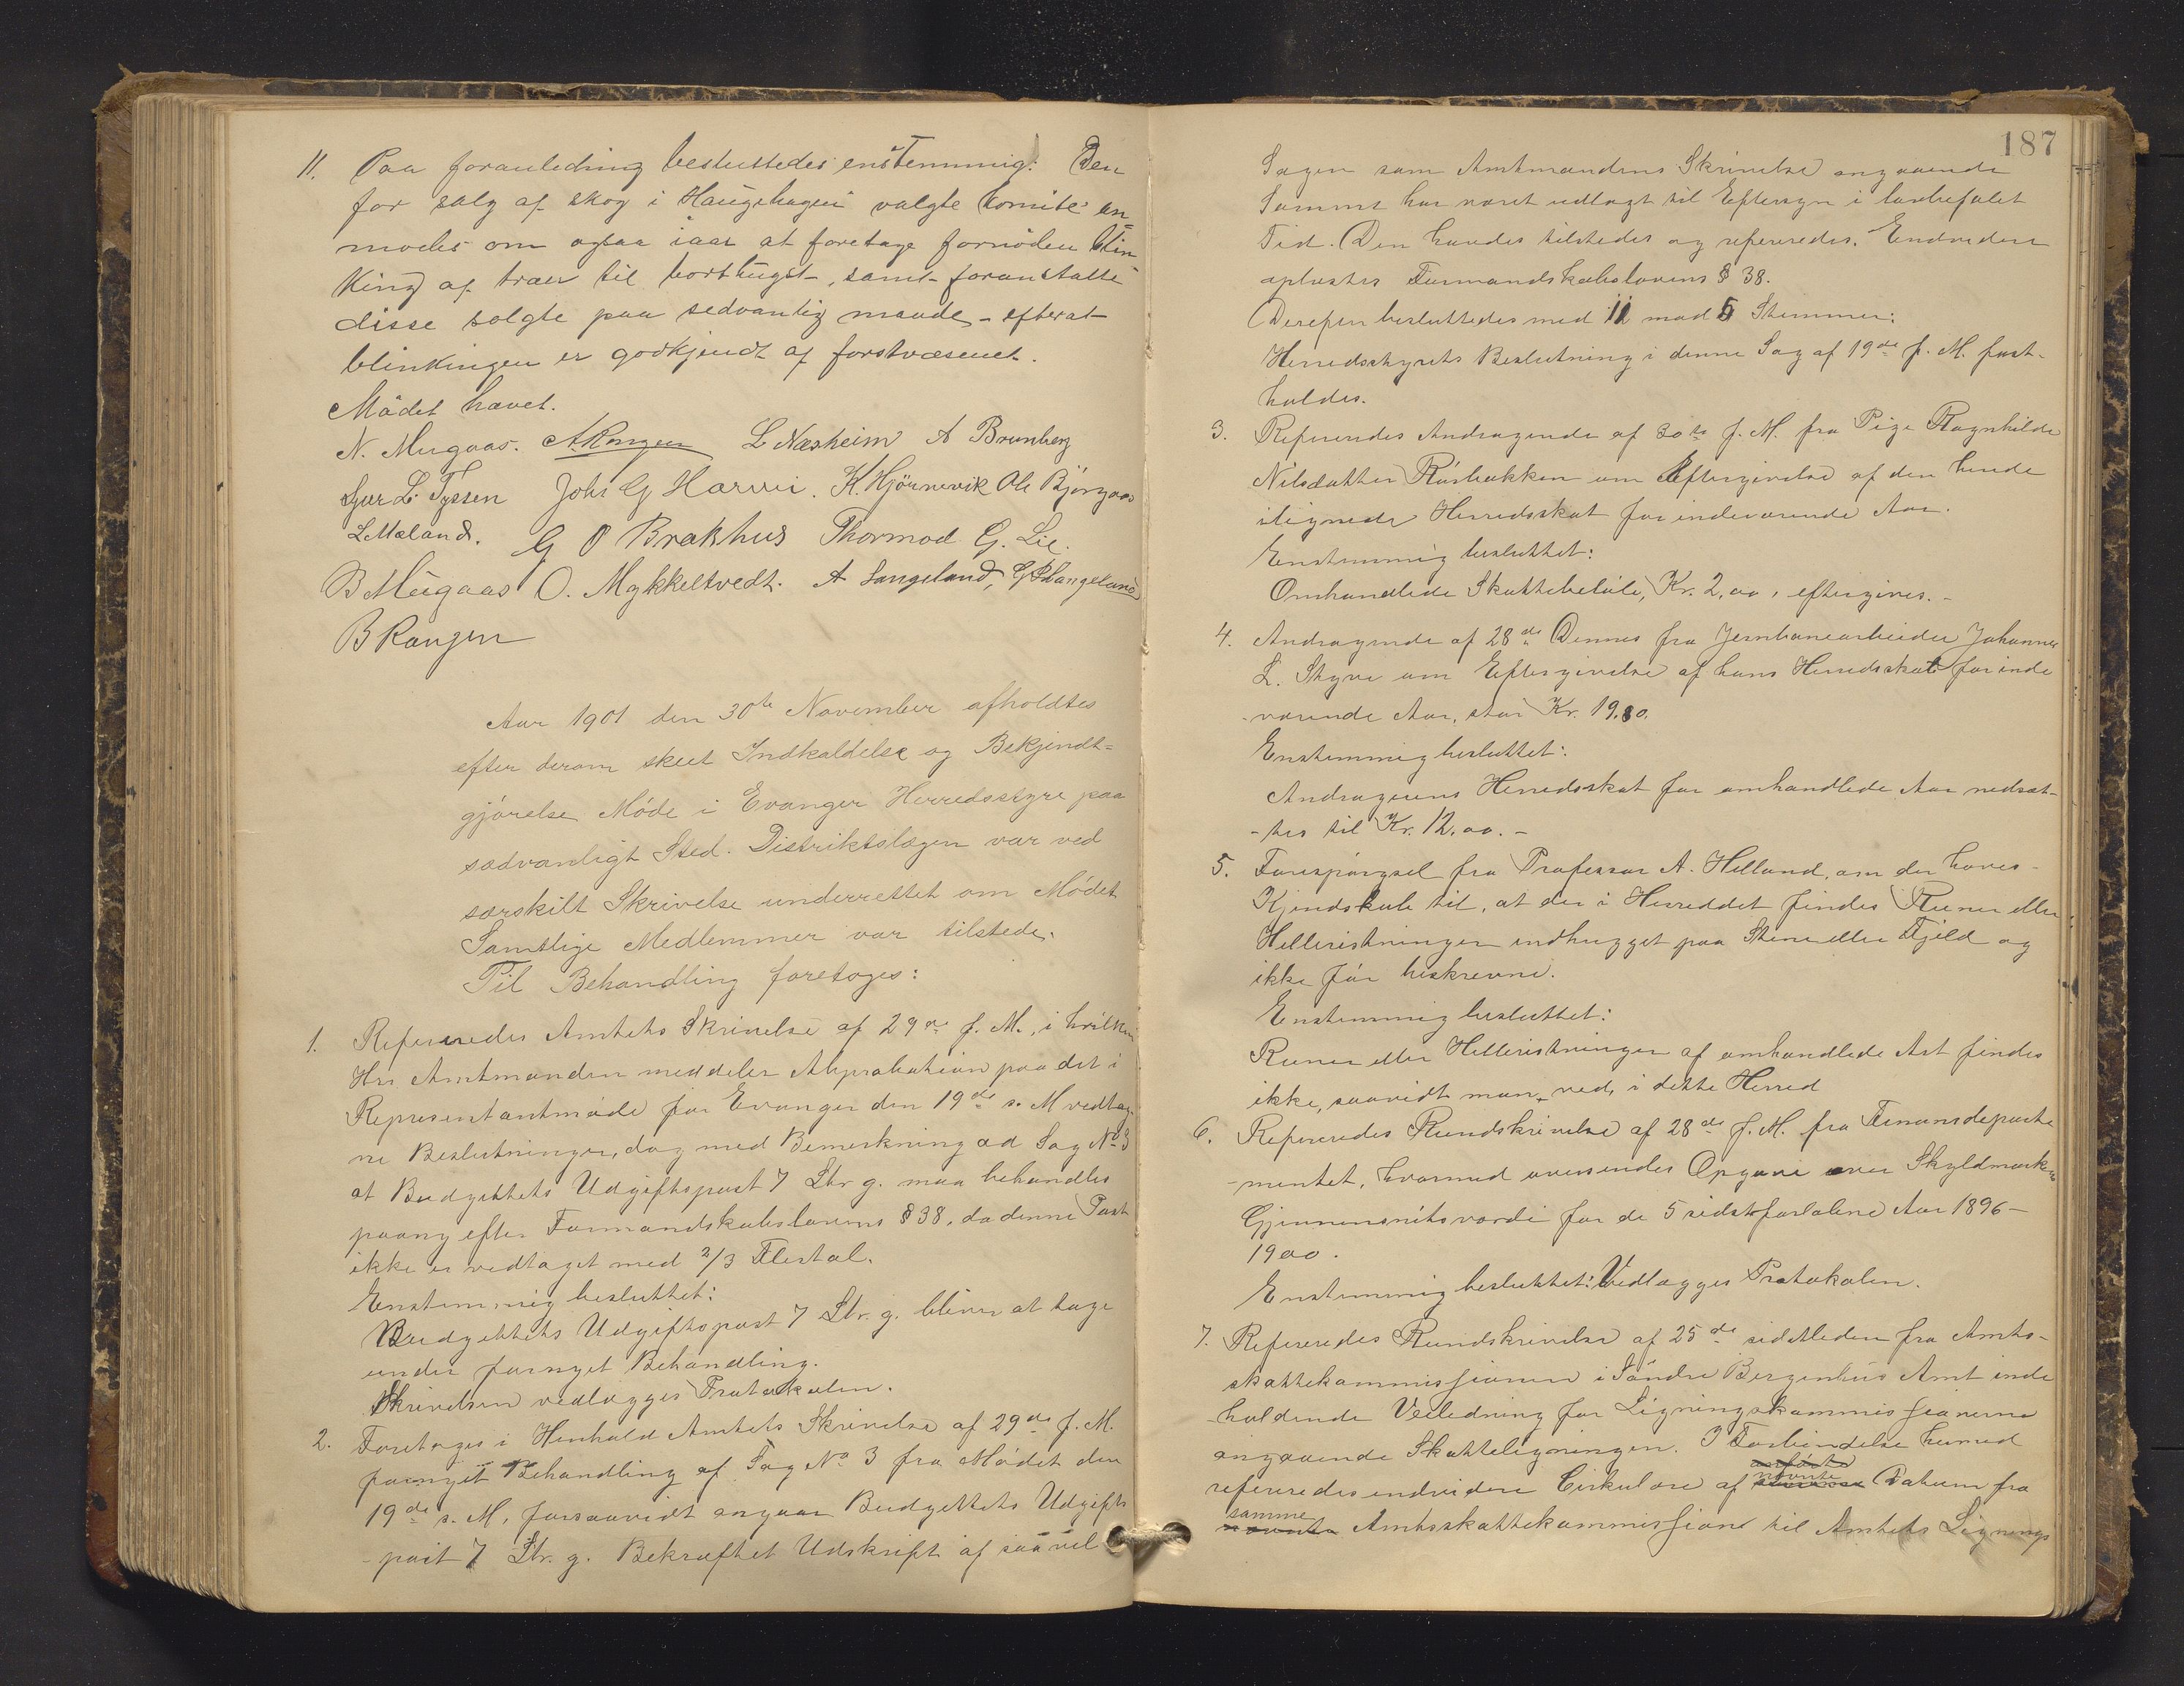 11. Paa foranledning besluttedes enstemmig: Den
for salg af skog i Haugehagen valgte komite an-
modes om ogsaa iaar at foretage fornöden blin-
king af træer til borthugst, samt foranstalte
disse solgte paa sedvanlig maade – efterat
blinkingen er godkjendt af forstvæsenet.
Mödet hævet.
N. Mugaas. A Rongen L Næsheim A Brunborg
Sjur L. Tyssen Johs G Horvei. K. Hjörnevik Ole Björgaas
L Mæland. G O Brakhus Thormod G. Lie.
B Mugaas O. Mykkeltvedt. A Langeland, G P Langeland
B Rongen
Aar 1901 den 30te November afholdtes
efter derom skeet Indkaldelse og Bekjendt=
gjörelse Möde i Evanger Herredsstyre paa
sædvanligt Sted. Distriktslægen var ved
særskilt Skrivelse underrettet om Mödet
Samtlige Medlemmer var tilstede.
Til Behandling foretoges:
1. Refereredes Amtets Skrivelse af 29de f. M., i hvilken
Hr. Amtmanden meddeler Approbation paa det i
Representantmöde for Evanger den 19de s. M vedtag-
ne Beslutninger, dog med Bemerkning ad Sag No 3
at Budgettets Udgiftspost 7 Litr g. maa behandles
paany efter Formandskabslovens § 38, da denne Post
ikke er vedtaget med 2/3 Flertal.
Enstemmig besluttet:
Budgettets Udgiftspost 7 Litr. g. bliver at tage
under fornyet Behandling.
Skrivelsen vedlægges Protokolen.
2. Foretoges i Henhold Amtets Skrivelse af 29de f. M.
fornyet Behandling af Sag No 3 fra Mödet den
19de s. M, forsaavidt angaar Budgettets Udgifts
-post 7 Litr. g. Bekræftet Udskrift af saavel
187
Sagen som Amtmandens Skrivelse angaaende
Samme har været udlagt til Eftersyn i lovbefalet
Tid. Den havdes tilstedes og refereredes. Endvidere
oplæstes Formandskabslovens § 38.
Derefter besluttedes med 12 mod 5 Stemmer:
Herredsstyrets Beslutning i denne Sag af 19de f. M. fast-
holdes.
3. Refereredes Andragende af 30te f. M. fra Pige Ragnhilde
Nilsdatter Rösbakken om Eftergivelse af den hende
ilignede Herredsskat for indeværende Aar.
Enstemmig besluttet:
Omhandlede Skattebelöb, Kr. 2,00, eftergives. –
4. Andragende af 28de Dennes fra Jernbanearbeider Johannes
L. Skyve om Eftergivelse af hans Herredsskat for inde
-værende Aar, stor Kr. 19.80.
Enstemmig besluttet:
Andragerens Herredsskat for omhandlede Aar nedsæt-
-tes til Kr. 12,00. –
5. Forespörgsel fra Professor A. Helland, om der haves
Kjendskab til, at der i Herreddet findes Runer eller
Helleristninger indhugget paa Stene eller Fjeld og
ikke för beskrevne.
Enstemmig besluttet:
Runer eller Helleristninger af omhandlede Art findes
ikke, saavidt man ved, i dette Herred
6. Refereredes Rundskrivelse af 28de f. M. fra Finansdeparte
-mentet, hvormed oversendes Opgave over Skyldmarkens
Gjennemsnitsværdi for de 5 sidstforløbne Aar 1896–
1900.
Enstemmig besluttet: Vedlægges Protokolen.
7. Refereredes Rundskrivelse af 25de sidstleden fra Amts-
skattekommissionen i Söndre Bergenhus Amt inde
holdende Veiledning for Ligningskommissionerne
angaaende Skatteligningen. I Forbindelse hermed
anförte
nævnte
refereredes endvidere Cirkulære af Datum fra
samme
nævnte Amtsskattekommission til Amtets Lignings